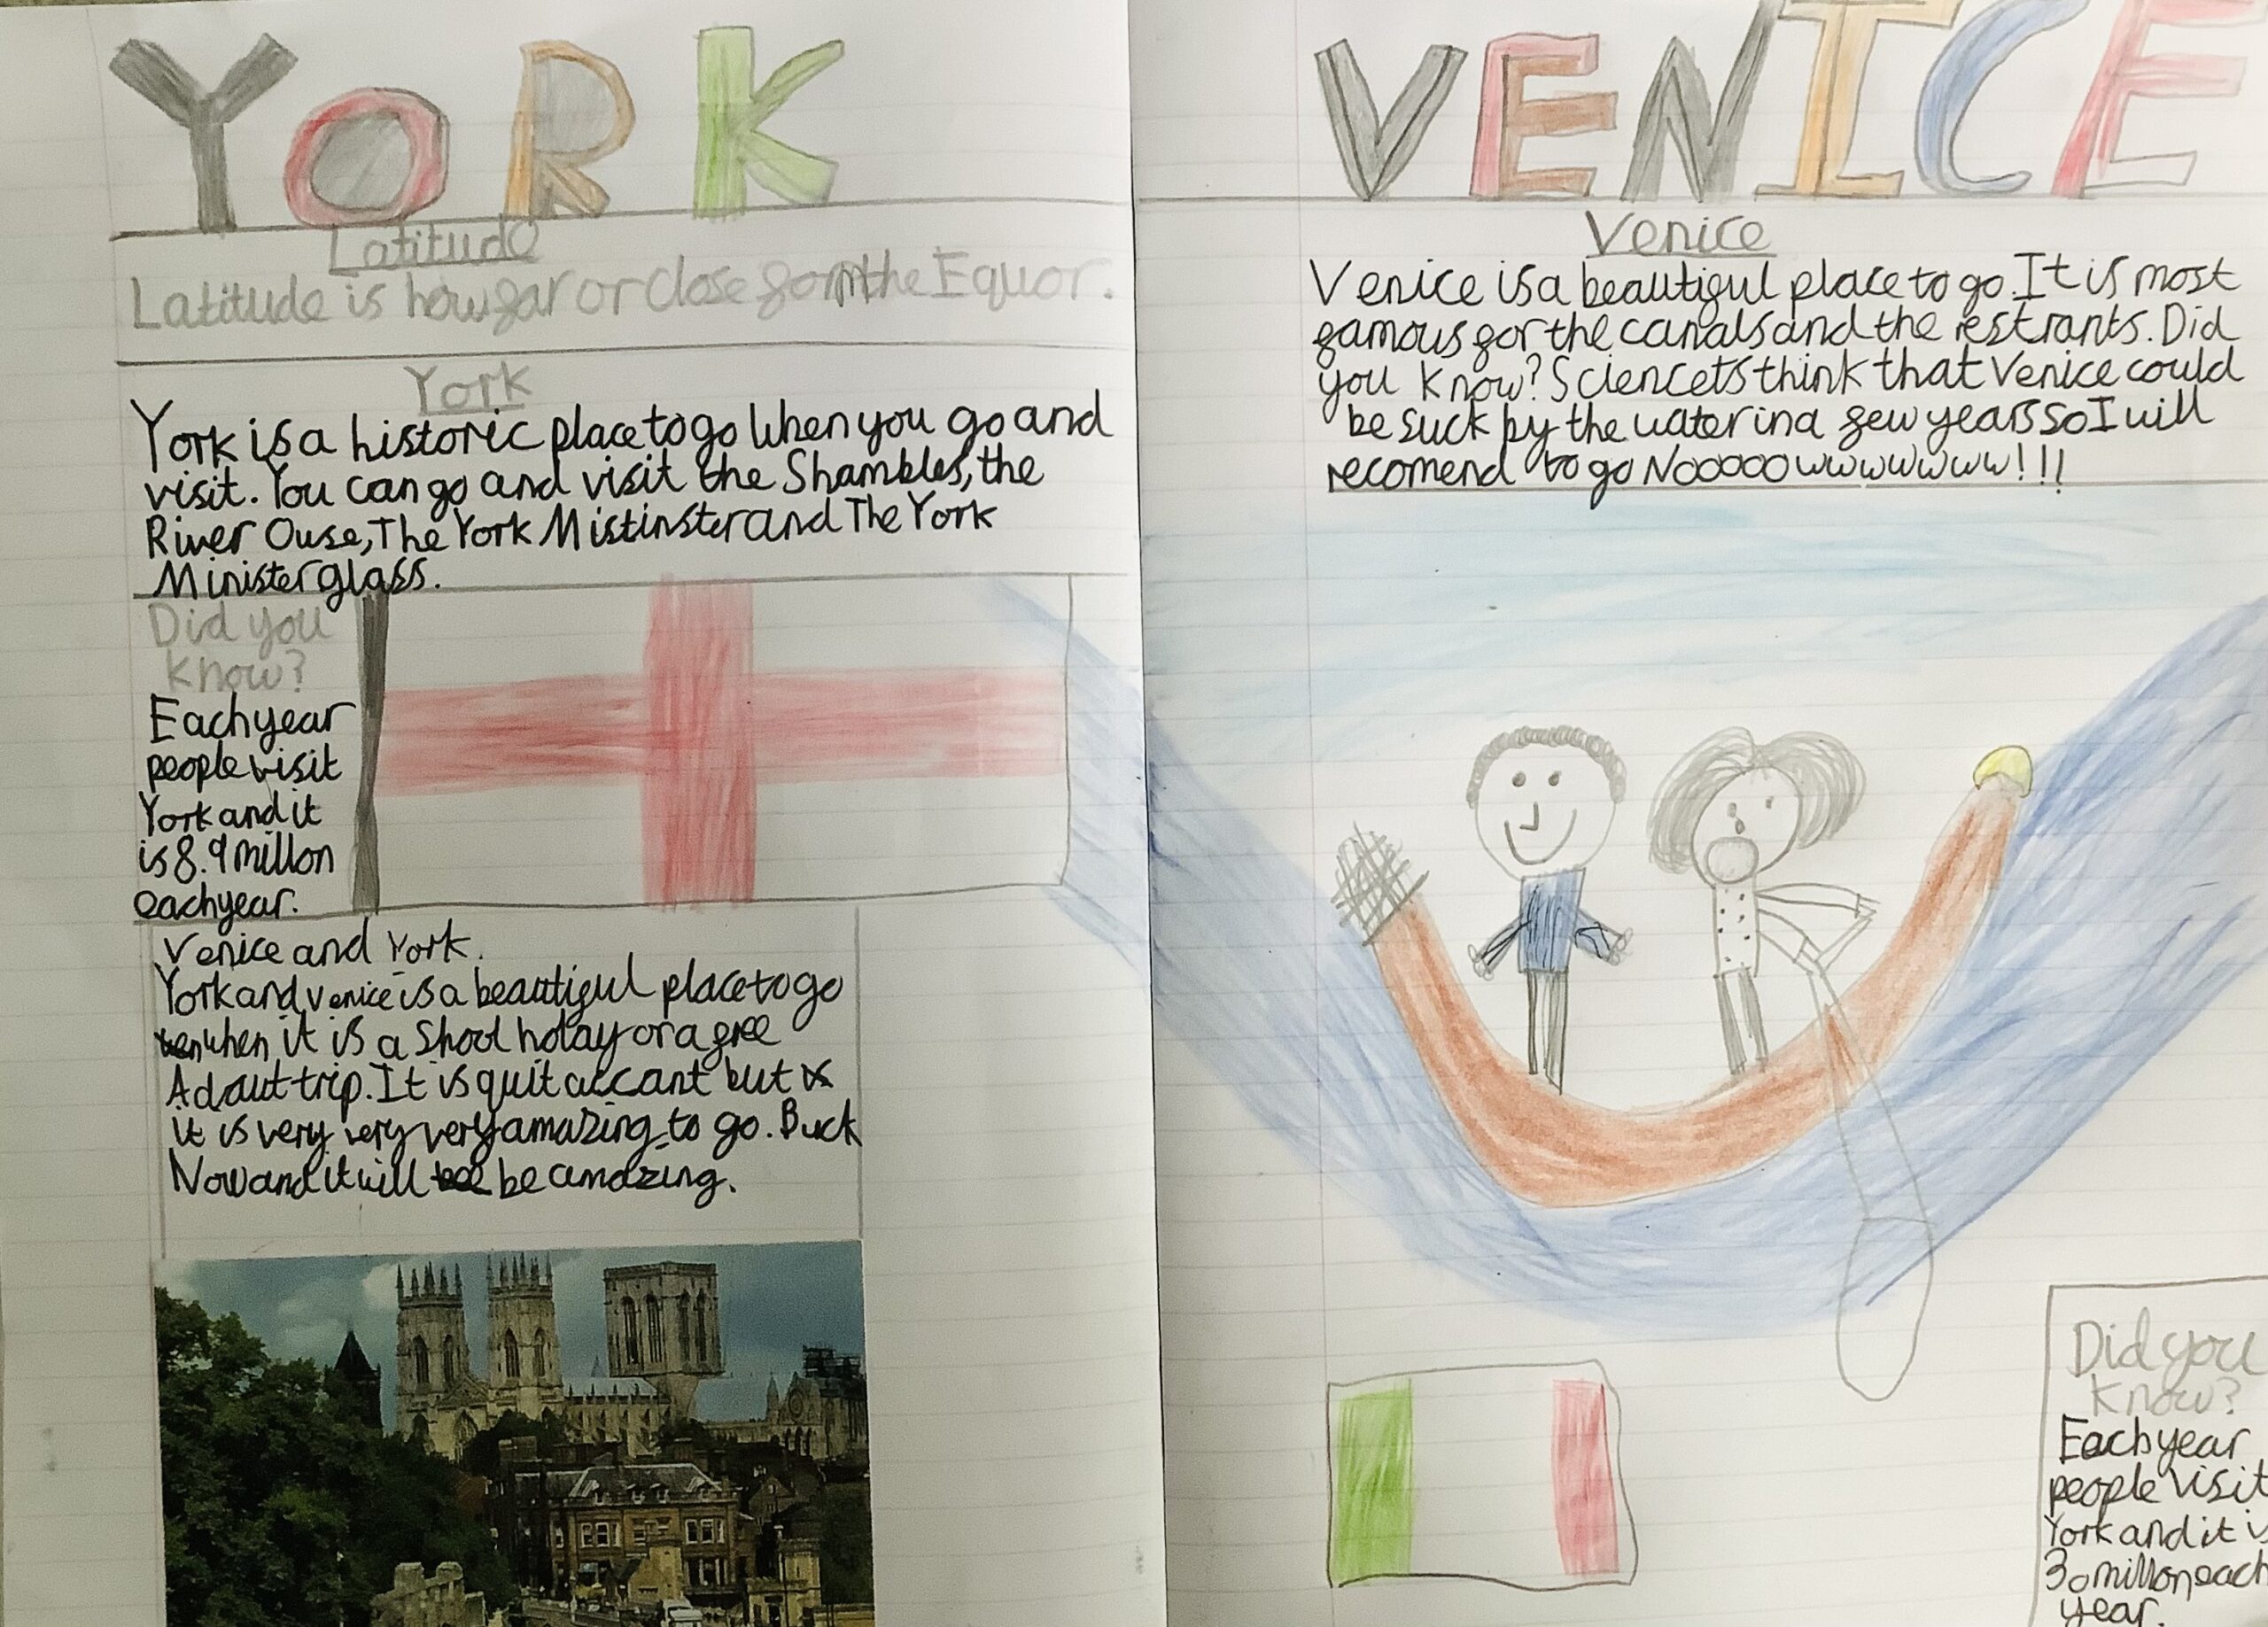 YORK
Latitude
Latitude is how far or close form the Equor.
York
York is a historic place to go When you go and
visit. You can go and visit the Shambles, the
River Ouse, The York Mistinster and The York
Minister glass.
Did you
know?
Each year
people visit
York and it
is 8.9 millon
each year.
Venice and York.
York and venice is a beautiful place to go
when it is a Shool holay or a free
Adaut trip. It is quit accant but
it is very very very amazing to go. Buck
Now and it will be amazing.
VENICE
Venice
Venice is a beautiful place to go. It is most
famous for the canals and the restrants. Did
you know? Sciencets think that Venice could
be suck by the water in a few years so I will
recomend to go Nooooowwwwwww!!!
Did you
know?
Each year
people visit
York and it is
30 millon each
year.